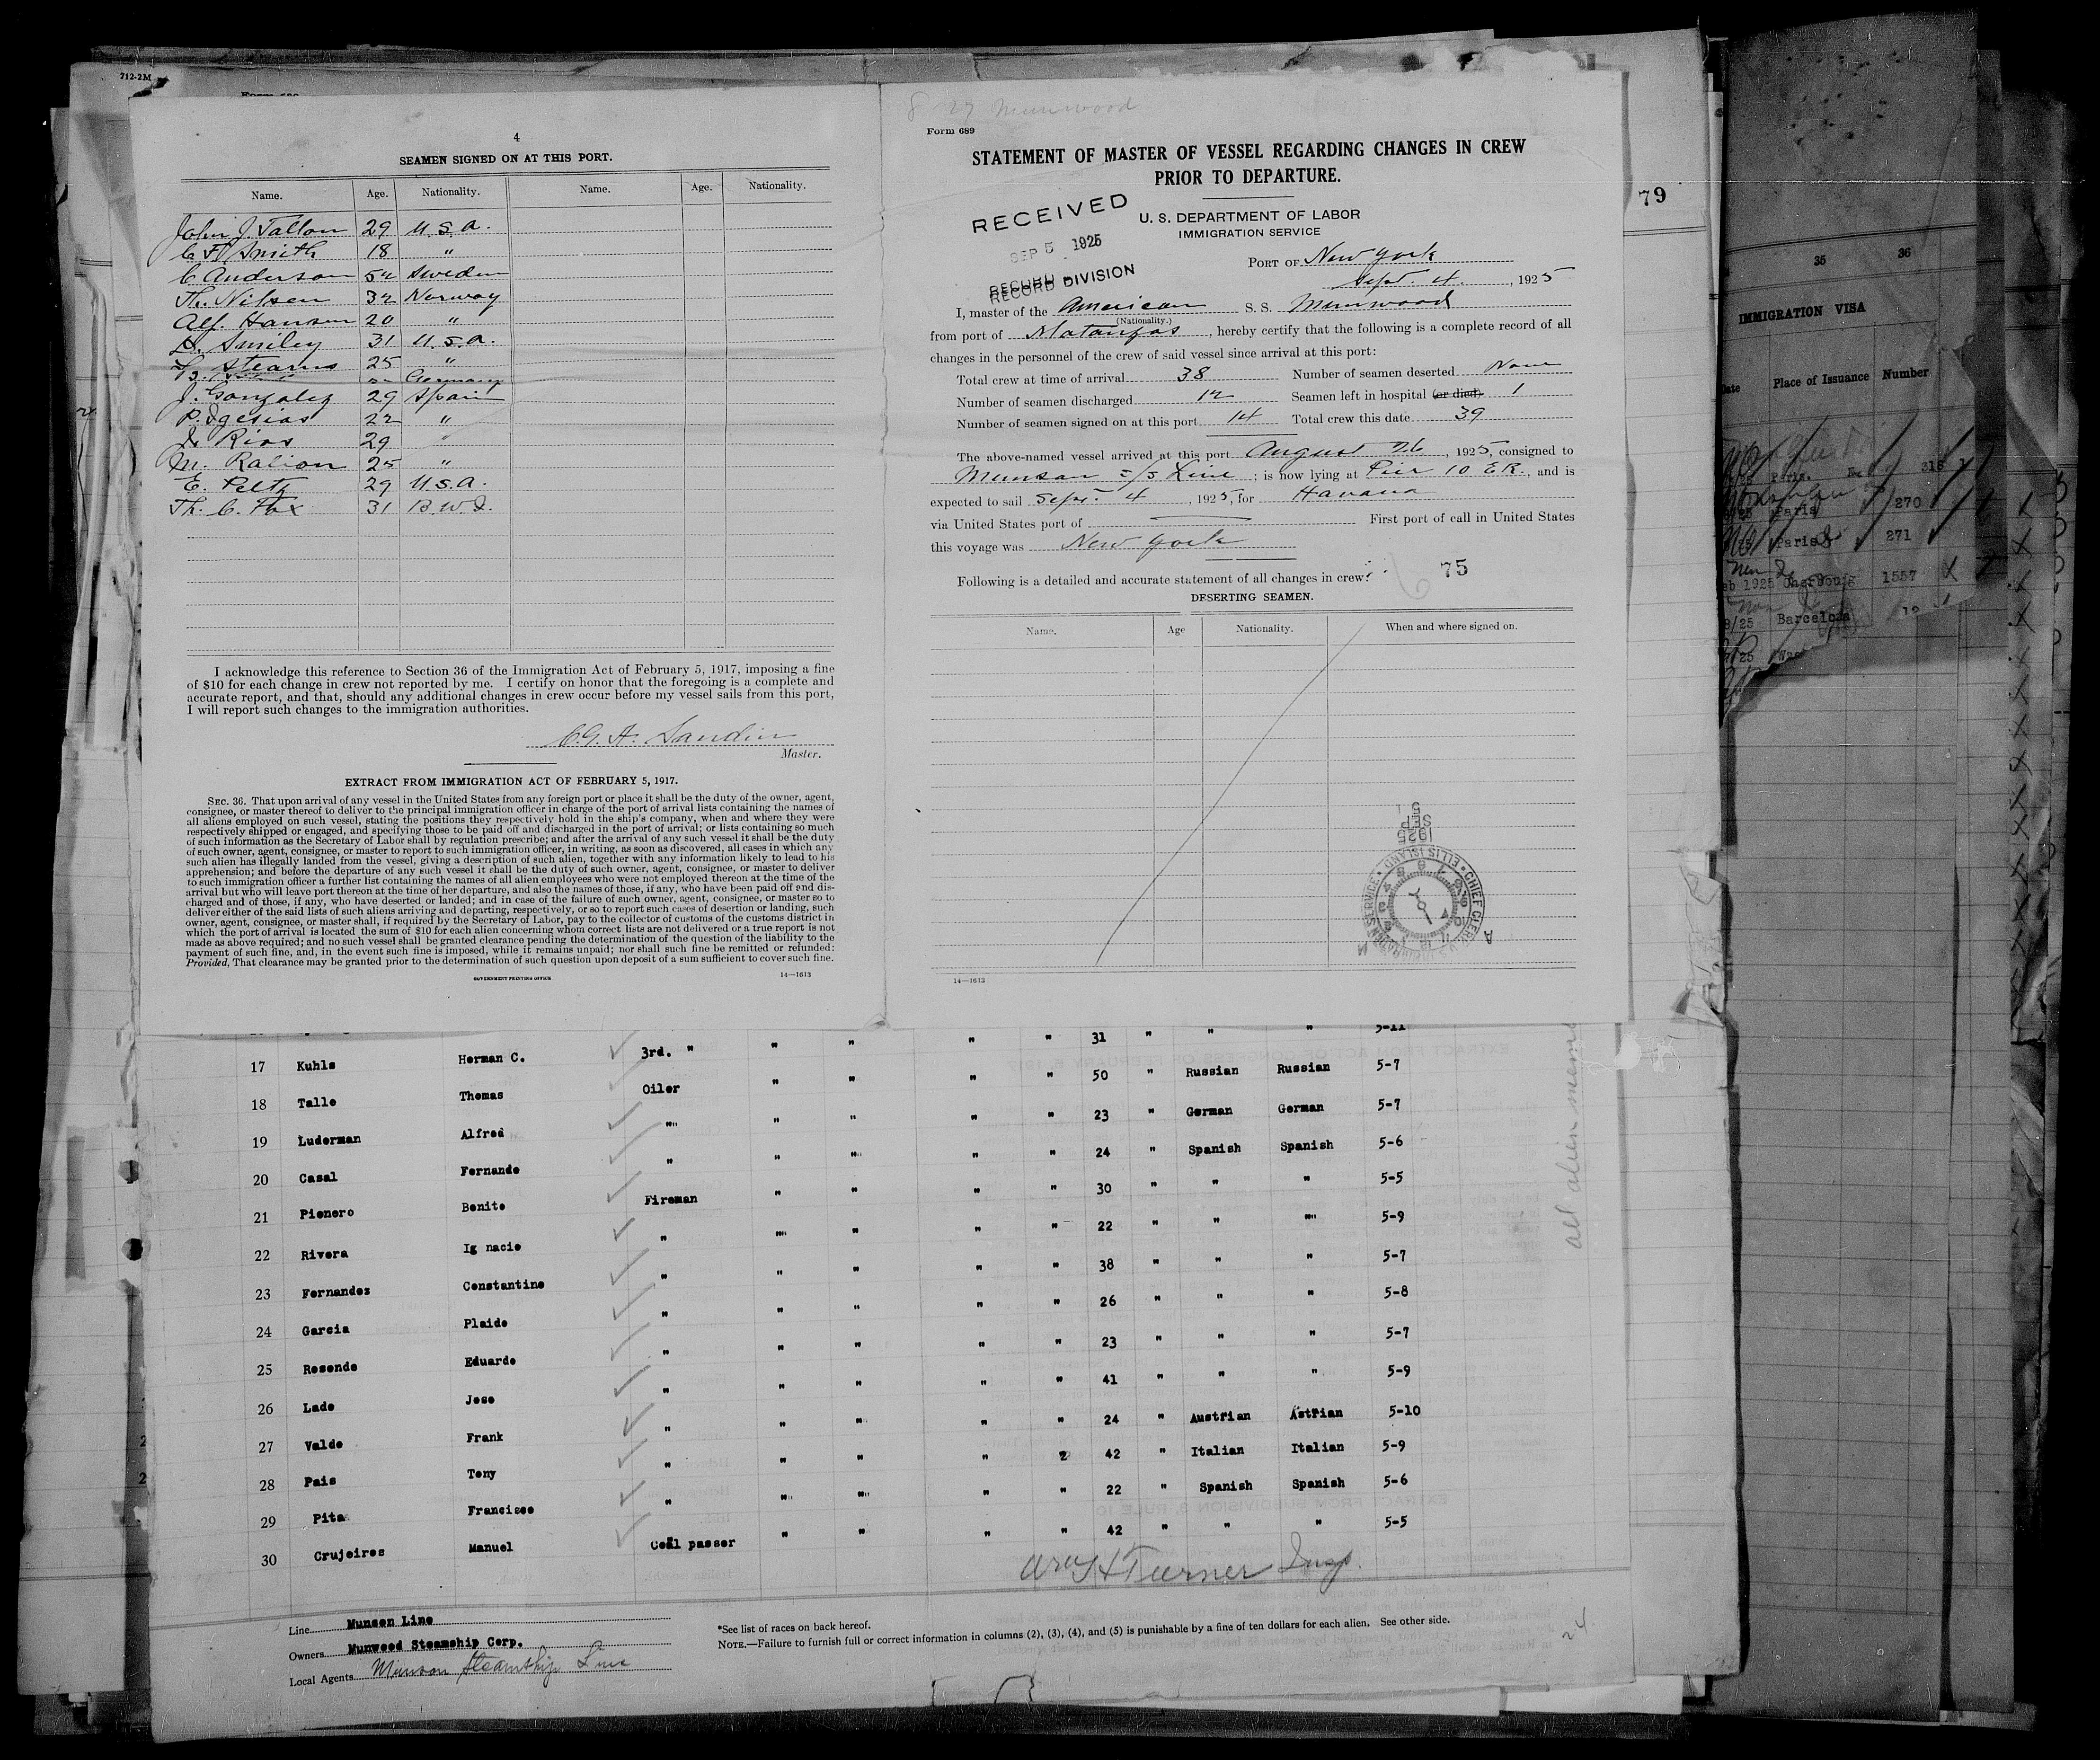 712-2M
4
SEAMEN SIGNED ON AT THIS PORT.
Name. Age. Nationality. Name. Age. Nationality.
John J. Tallon 29 U.S.A.
C. F. Smith 18 "
C. Anderson 54 Sweden
Th. Nilsen 32 Norway
Alf. Hansen 20 "
H. Smiley 31 U.S.A.
Stearns 25 "
Germany
J. Gonzalez 29 Spain
P. Iglesias 22 "
J. Rios 29 "
M. Ralion 25 "
E. Peltz 29 U.S.A.
Th. C. Fox 31 B.W.I.
I acknowledge this reference to Section 36 of the Immigration Act of February 5, 1917, imposing a fine
of $10 for each change in crew not reported by me. I certify on honor that the foregoing is a complete and
accurate report, and that, should any additional changes in crew occur before my vessel sails from this port,
I will report such changes to the immigration authorities.
C.G.A. Sandin
Master.
EXTRACT FROM IMMIGRATION ACT OF FEBRUARY 5, 1917.
SEC. 36. That upon arrival of any vessel in the United States from any foreign port or place it shall be the duty of the owner, agent,
consignee, or master thereof to deliver to the principal immigration officer in charge of the port of arrival lists containing the names of
all aliens employed on such vessel, stating the positions they respectively hold in the ship's company, when and where they were
respectively shipped or engaged, and specifying those to be paid off and discharged in the port of arrival; or lists containing so much
of such information as the Secretary of Labor shall by regulation prescribe; and after the arrival of any such vessel it shall be the duty
of such owner, agent, consignee, or master to report to such immigration officer, in writing, as soon as discovered, all cases in which any
such alien has illegally landed from the vessel, giving a description of such alien, together with any information likely to lead to his
apprehension; and before the departure of any such vessel it shall be the duty of such owner, agent, consignee, or master to deliver
to such immigration officer a further list containing the names of all alien employees who were not employed thereon at the time of the
arrival but who will leave port thereon at the time of her departure, and also the names of those, if any, who have been paid off and dis-
charged and of those, if any, who have deserted or landed; and in case of the failure of such owner, agent, consignee, or master so to
deliver either of the said lists of such aliens arriving and departing, respectively, or so to report such cases of desertion or landing, such
owner, agent, consignee, or master shall, if required by the Secretary of Labor, pay to the collector of customs of the customs district in
which the port of arrival is located the sum of $10 for each alien concerning whom correct lists are not delivered or a true report is not
made as above required; and no such vessel shall be granted clearance pending the determination of the question of the liability to the
payment of such fine, and, in the event such fine is imposed, while it remains unpaid; nor shall such fine be remitted or refunded:
Provided, That clearance may be granted prior to the determination of such question upon deposit of a sum sufficient to cover such fine.
GOVERNMENT PRINTING OFFICE 14—1613
8 27 Munwood
Form 689
STATEMENT OF MASTER OF VESSEL REGARDING CHANGES IN CREW
PRIOR TO DEPARTURE.
RECEIVED
SEP 5 1925
RECORD DIVISION
U. S. DEPARTMENT OF LABOR
IMMIGRATION SERVICE
PORT OF New York
Sept. 4, 1925
I, master of the American S. S. Munwood
(Nationality.)
from port of Matanzas, hereby certify that the following is a complete record of all
changes in the personnel of the crew of said vessel since arrival at this port:
Total crew at time of arrival 38 Number of seamen deserted None
Number of seamen discharged 12 Seamen left in hospital (or died) 1
Number of seamen signed on at this port 14 Total crew this date 39
The above-named vessel arrived at this port August 26, 1925, consigned to
Munson S/S Line; is now lying at Pier 10 E.R., and is
expected to sail Sept. 4, 1925, for Havana
via United States port of — First port of call in United States
this voyage was New York
Following is a detailed and accurate statement of all changes in crew: 75
DESERTING SEAMEN.
Name. Age Nationality. When and where signed on.
SEP 5 1925
CHIEF CLERK U.S. IMMIGRATION SERVICE • ELLIS ISLAND •
14—1613
31 " " " 5-11
17 Kuhls Herman C. 3rd. " " " " " 50 " Russian Russian 5-7
18 Talle Thomas Oiler " " " " 23 " German German 5-7
19 Luderman Alfred " " " " " 24 " Spanish Spanish 5-6
20 Casal Fernando " " " " " 30 " " " 5-5
21 Pienero Benito Fireman " " " " 22 " " " 5-9
22 Rivera Ig nacio " " " " " 38 " " " 5-7
23 Fernandez Constantino " " " " " 26 " " " 5-8
24 Garcia Plaido " " " " " 23 " " " 5-7
25 Resende Eduardo " " " " " 41 " " " 5-9
26 Lado Jose " " " " " 24 " Austrian Astrian 5-10
27 Valdo Frank " " " " 2 42 " Italian Italian 5-9
28 Pais Tony " " " " " 22 " Spanish Spanish 5-6
29 Pita Francisco " " " " " 42 " " " 5-5
30 Crujeiros Manuel Coal passer " "
Turner Insp.
all alien
Line Munson Line
Owners Munwood Steamship Corp.
Local Agents Munson Steamship Line
*See list of races on back hereof.
NOTE.—Failure to furnish full or correct information in columns (2), (3), (4), and (5) is punishable by a fine of ten dollars for each alien. See other side.
24
79
35 36
IMMIGRATION VISA
Date Place of Issuance Number
Paris. 318
Paris 270
Paris 271
1925 Cherbourg 1557
8/25 Barcelona 12
7/25